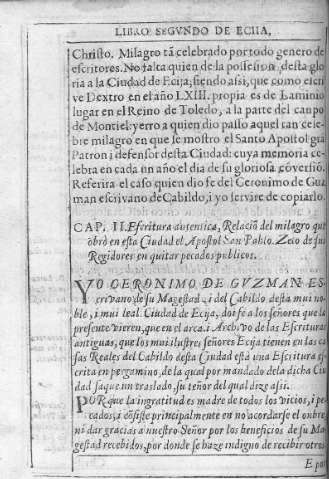 LIBRO SEGVNDO DE ECIJA,
Christo. Milagro tã celebrado por todo genero de
escritores. No falta quien de la possesion desta glo
ria a la Ciudad de Ecija; siendo assi, que como escri
ve Dextro en el año LXIII. propia es de Laminio
lugar en el Reino de Toledo, a la parte del canpo
de Montiel: yerro a quien dio passo aquel tan cele-
bre milagro en que se mostro el Santo Apostol gra
Patron i defensor desta Ciudad: cuya memoria ce-
lebra en cada un año el dia de su gloriosa cõversiõ.
Referira el caso quien dio fe del Geronimo de Guz
man escrivano de Cabildo, i yo servire de copiarlo.
CAP. II. Escritura autentica, Relaciõ del milagro que
obrò en esta Ciudad el Apostol San Pablo. Zelo de sus
Regidores en quitar pecados publicos.
YO GERONIMO DE GVZMAN ES-
crivano de su Magestad, i del Cabildo desta mui no
ble, i mui leal Ciudad de Ecija, doi fe a los señores que la
presente vieren, que en el arca i Archivo de las Escrituras
antiguas, que los mui ilustres señores Ecija tienen en las ca
sas Reales del Cabildo desta Ciudad està una Escritura es-
crita en pergamino, de la qual por mandado de la dicha Ciu
dad saque un traslado, su tenor del qual dize assi.
POR que la ingratitud es madre de todos los vicios, i pe-
cados, i cõsiste principalmente en no acordarse el onbre
ni dar gracias a nuestro Señor por los beneficios de su Ma
gestad recebidos, por donde se haze indigno de recibir otros
E por